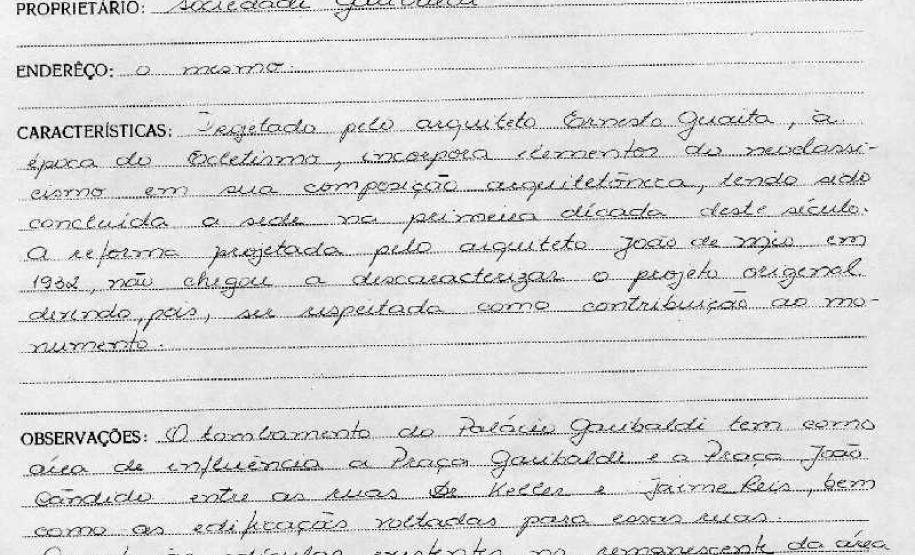 PROPRIETÁRIO: Sociedade
ENDERÊÇO: o mesmo.
CARACTERÍSTICAS: Projetado pelo arquiteto Ernesto Guaita, à
época do Ecletismo, incorpora elementos do neoclassi-
cismo em sua composição arquitetônica, tendo sido
concluída a sede na primeira década deste século.
A reforma projetada pelo arquiteto João de Mio em
1932, não chegou a descaracterizar o projeto original
devendo, pois, ser respeitada como contribuição ao mo-
numento.
OBSERVAÇÕES: O tombamento do Palácio Garibaldi tem como
área de influência a Praça Garibaldi e a Praça João
Cândido entre as ruas Dr Keller e Jaime Reis, bem
como as edificações voltadas para essas ruas.
existentes no remanescente da área